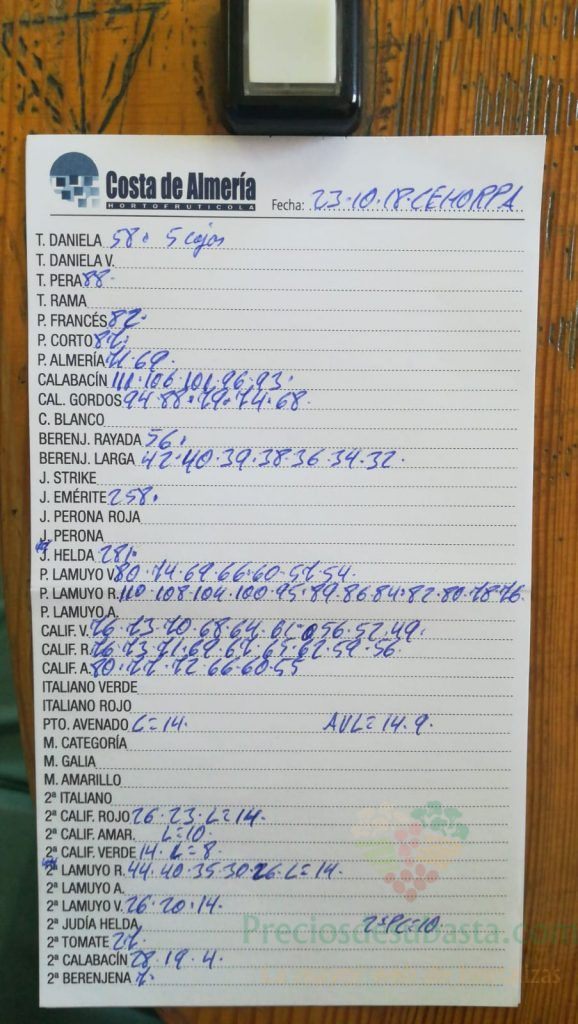 Costa de Almería
HORTOFRUTICOLA
Fecha: 23·10·18·CEHORPA
T. DANIELA 58· 5 cajas
T. DANIELA V.
T. PERA 88·
T. RAMA
P. FRANCÉS 82·
P. CORTO
P. ALMERÍA 71·69·
CALABACÍN 111·106·101·96·93·
CAL. GORDOS 94·88·79·74·68·
C. BLANCO
BERENJ. RAYADA 56·
BERENJ. LARGA 42·40·39·38·36·34·32·
J. STRIKE
J. EMÉRITE 258·
J. PERONA ROJA
J. PERONA
J. HELDA 281·
P. LAMUYO V. 80·74·69·66·60·57·54·
P. LAMUYO R. 110·108·104·100·95·89·86·84·82·80·78·76·
P. LAMUYO A.
CALIF. V. 76·73·70·68·64· 56·52·49·
CALIF. R. 76·73·71·69·67·65·62·59·56·
CALIF. A. 80·77·72·66·60·55
ITALIANO VERDE
ITALIANO ROJO
PTO. AVENADO L=14· AVL=14·9·
M. CATEGORÍA
M. GALIA
M. AMARILLO
2ª ITALIANO
2ª CALIF. ROJO 26·23·L=14·
2ª CALIF. AMAR. L=10·
2ª CALIF. VERDE 14·L=8·
2ª LAMUYO R. 44·40·35·30·26·L=14·
2ª LAMUYO A.
2ª LAMUYO V. 26·20·14·
2ª JUDÍA HELDA
Preciosdesubasta.com
2ª TOMATE
2ª CALABACÍN 28·19·4·
2ª BERENJENA